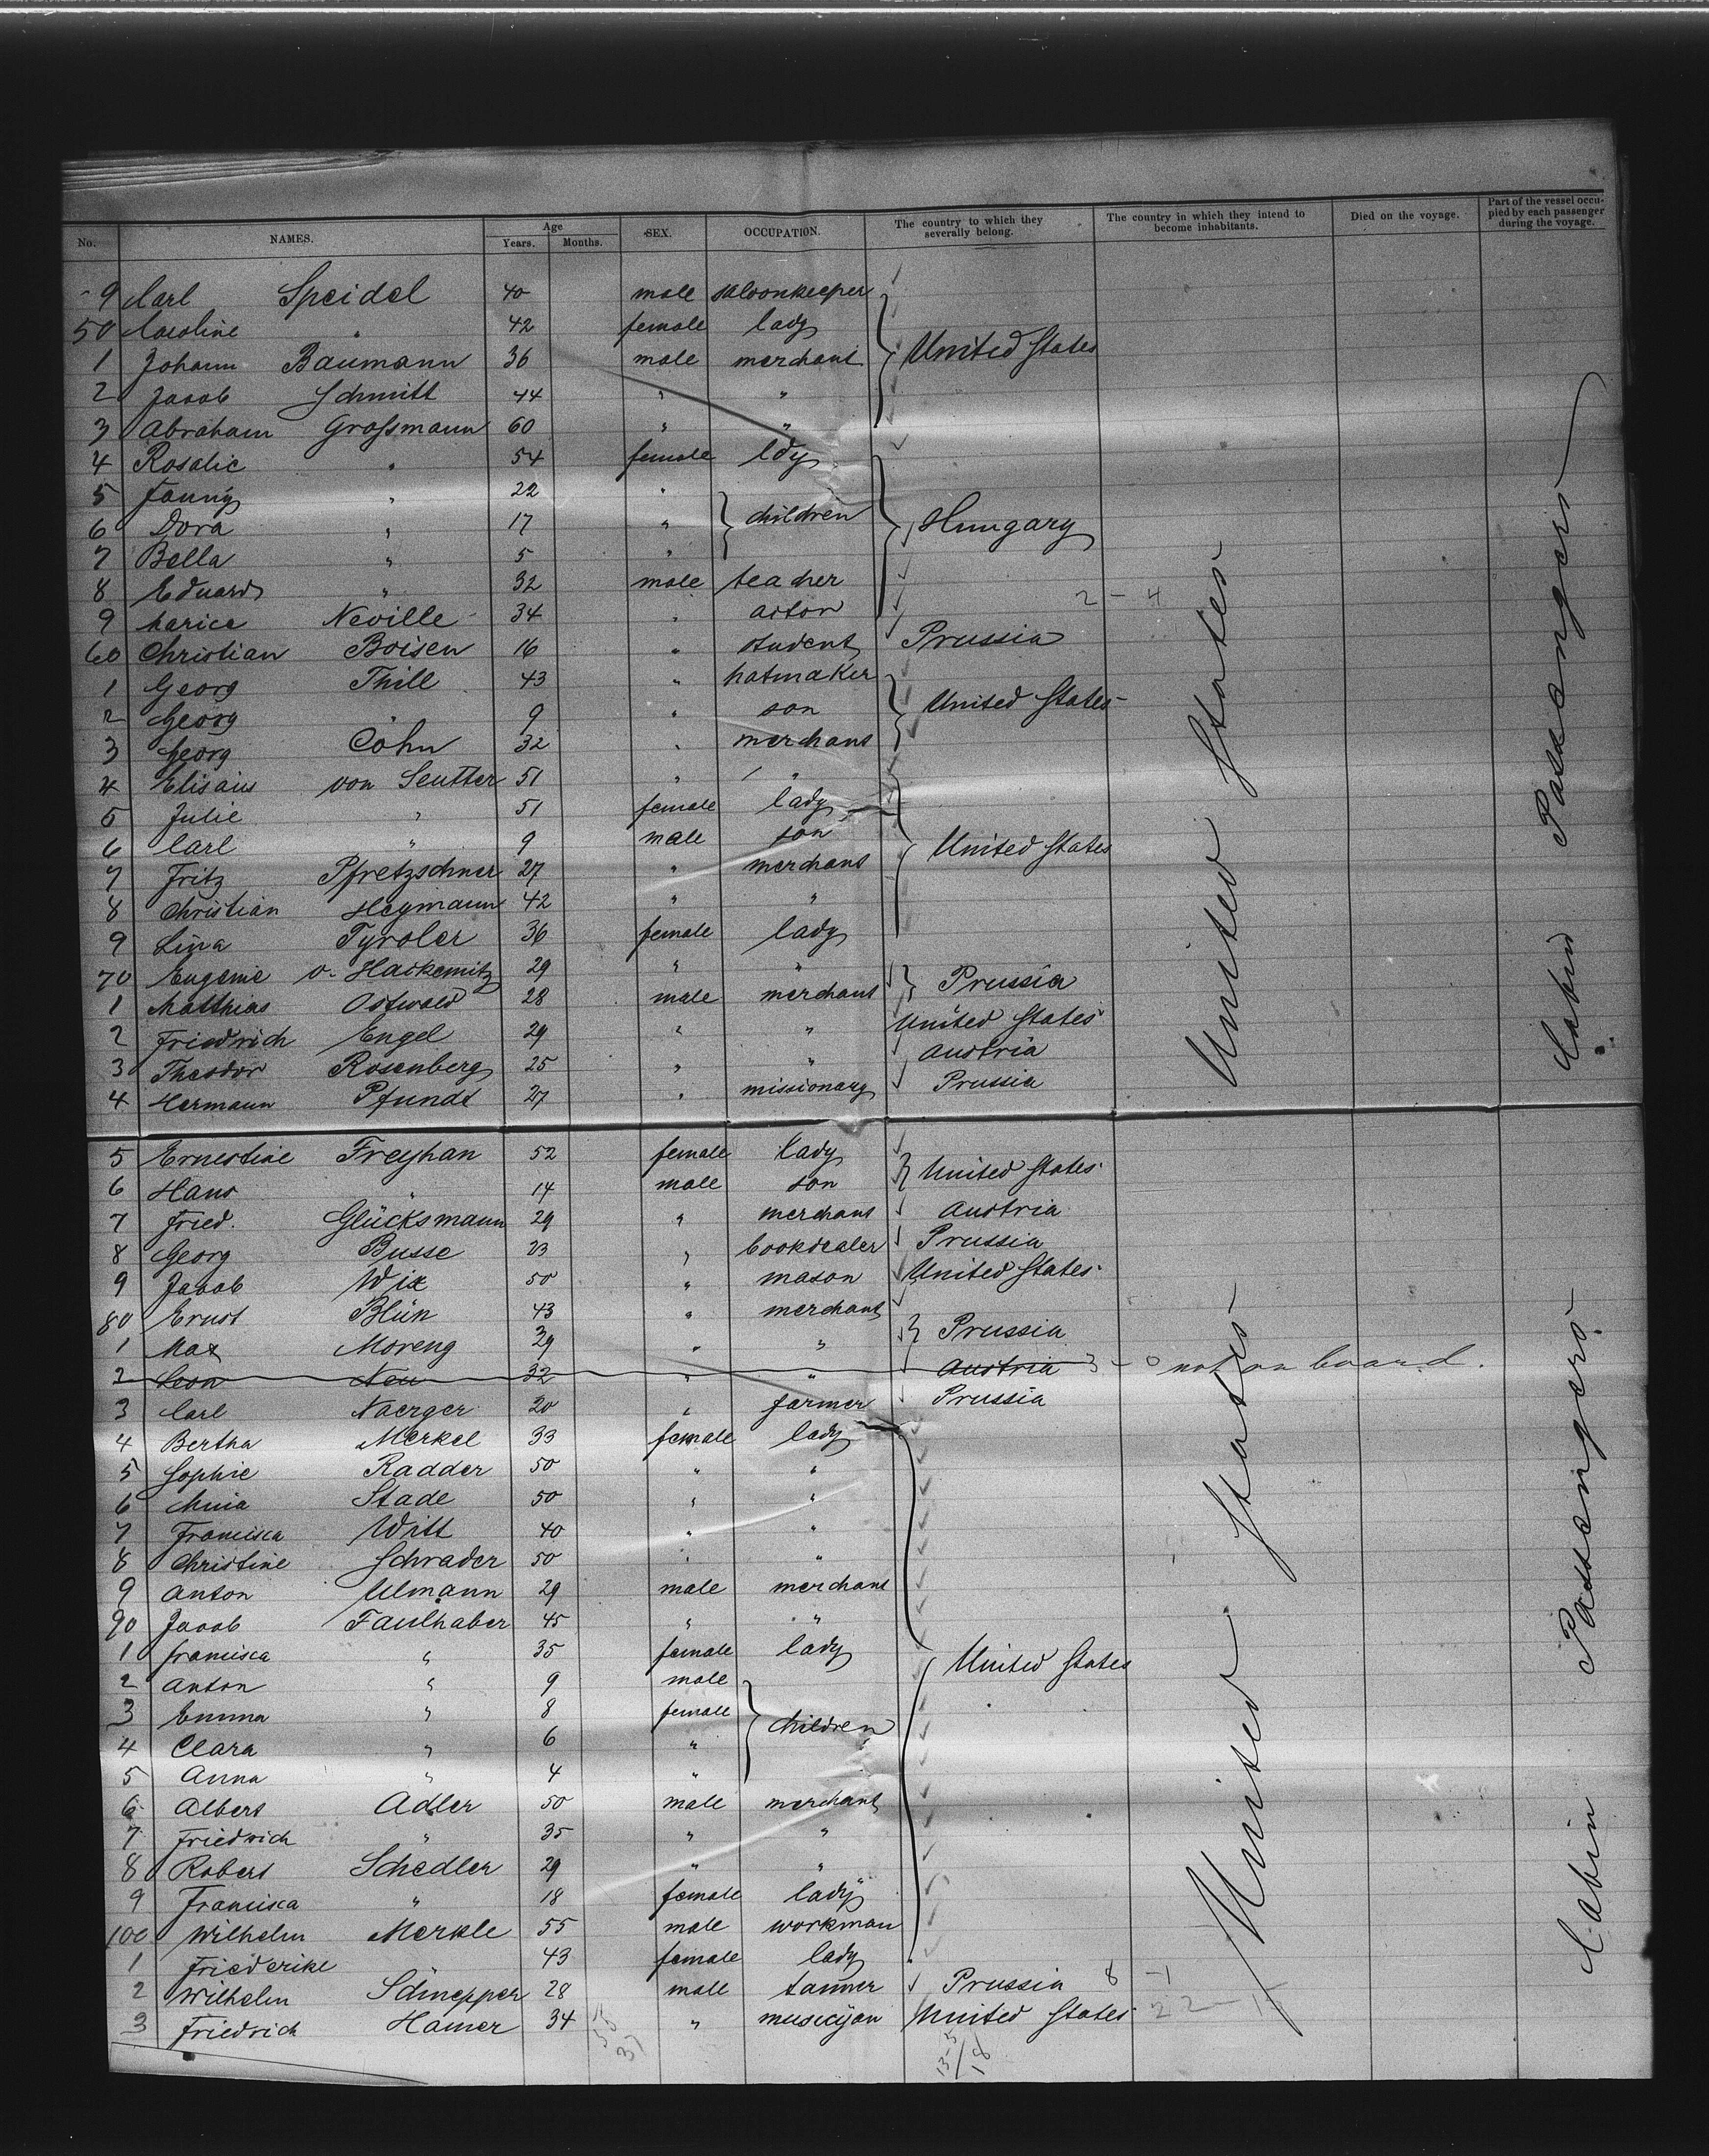 No. NAMES. Age Years. Months. SEX. OCCUPATION. The country to which they severally belong. The country in which they intend to become inhabitants. Died on the voyage. Part of the vessel occupied by each passenger during the voyage.
9 Carl Speidel 40 male saloonkeeper
50 Caroline " 42 female lady
1 Johann Baumann 36 male merchant United States
2 Jacob Schmitt 44 " "
3 Abraham Grossmann 60 " "
4 Rosalie " 54 female ldy
5 Fanny " 22 "
6 Dora " 17 " children Hungary
7 Bella " 5 "
8 Eduard " 32 male teacher
9 Neville 34 " actor 2 - 4
60 Christian Boisen 16 " student Prussia
1 Georg Thill 43 " hatmaker
2 Georg " 9 " son United States
3 Georg Cohn 32 " merchant
4 Elisaius von Seutter 51 " "
5 Julie " 51 female lady
6 Carl " 9 male son United States
7 Fritz Pfretzschner 27 " merchant
8 Christian Heymann 42 " "
9 Lina Tyroler 36 female lady
70 Eugenie v. 29 " " Prussia
1 Matthias Ostwald 28 male merchant
2 Friedrich Engel 29 " " United States
3 Theodor Rosenberg 25 " " Austria
4 Hermann Pfundt 27 " missionary Prussia
United States
Cabin Passengers
5 Ernestine Freyhan 52 female lady United States
6 Hans " 14 male son
7 Fried. Glücksmann 29 " merchant Austria
8 Georg Busse 23 " bookdealer Prussia
9 Jacob Wix 50 " mason United States
80 Ernst Blün 43 " merchant Prussia
1 Max Moreng 29 " "
2 Leon Neu 32 " " Austria 3 - 0 not on board.
3 Carl Naerger 20 " farmer Prussia
4 Bertha Merkel 33 female lady
5 Sophie Radder 50 " "
6 Stade 50 " "
7 Francisca Witt 40 " "
8 Christine Schrader 50 " "
9 Anton Ulmann 29 male merchant
90 Jacob Faulhaber 45 " "
1 Francisca " 35 female lady United States
2 Anton " 9 male
3 Emma " 8 female children
4 Clara " 6 "
5 Anna " 4 "
6 Albert Adler 50 male merchant
7 Friedrich " 35 " "
8 Robert Schedler 29 " "
9 Francisca " 18 female lady
100 Wilhelm Merkle 55 male workman
1 Friederike 43 female lady
2 Wilhelm Schnepper 28 male tanner Prussia 8 - 1
3 Friedrich Hamer 34 " musicijan United States 22
United States
Cabin Passengers.